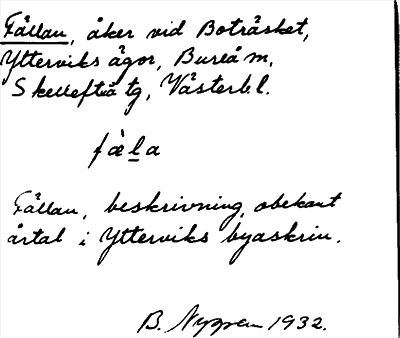 Fällan, åker vid Boträsket,
Ytterviks ägor, Bureå m,
Skellefteå tg, Västerb l.
fä̀l̲a
Fällan, beskrivning, obekant
årtal i Ytterviks byaskrin.
B. Nyppen 1932.